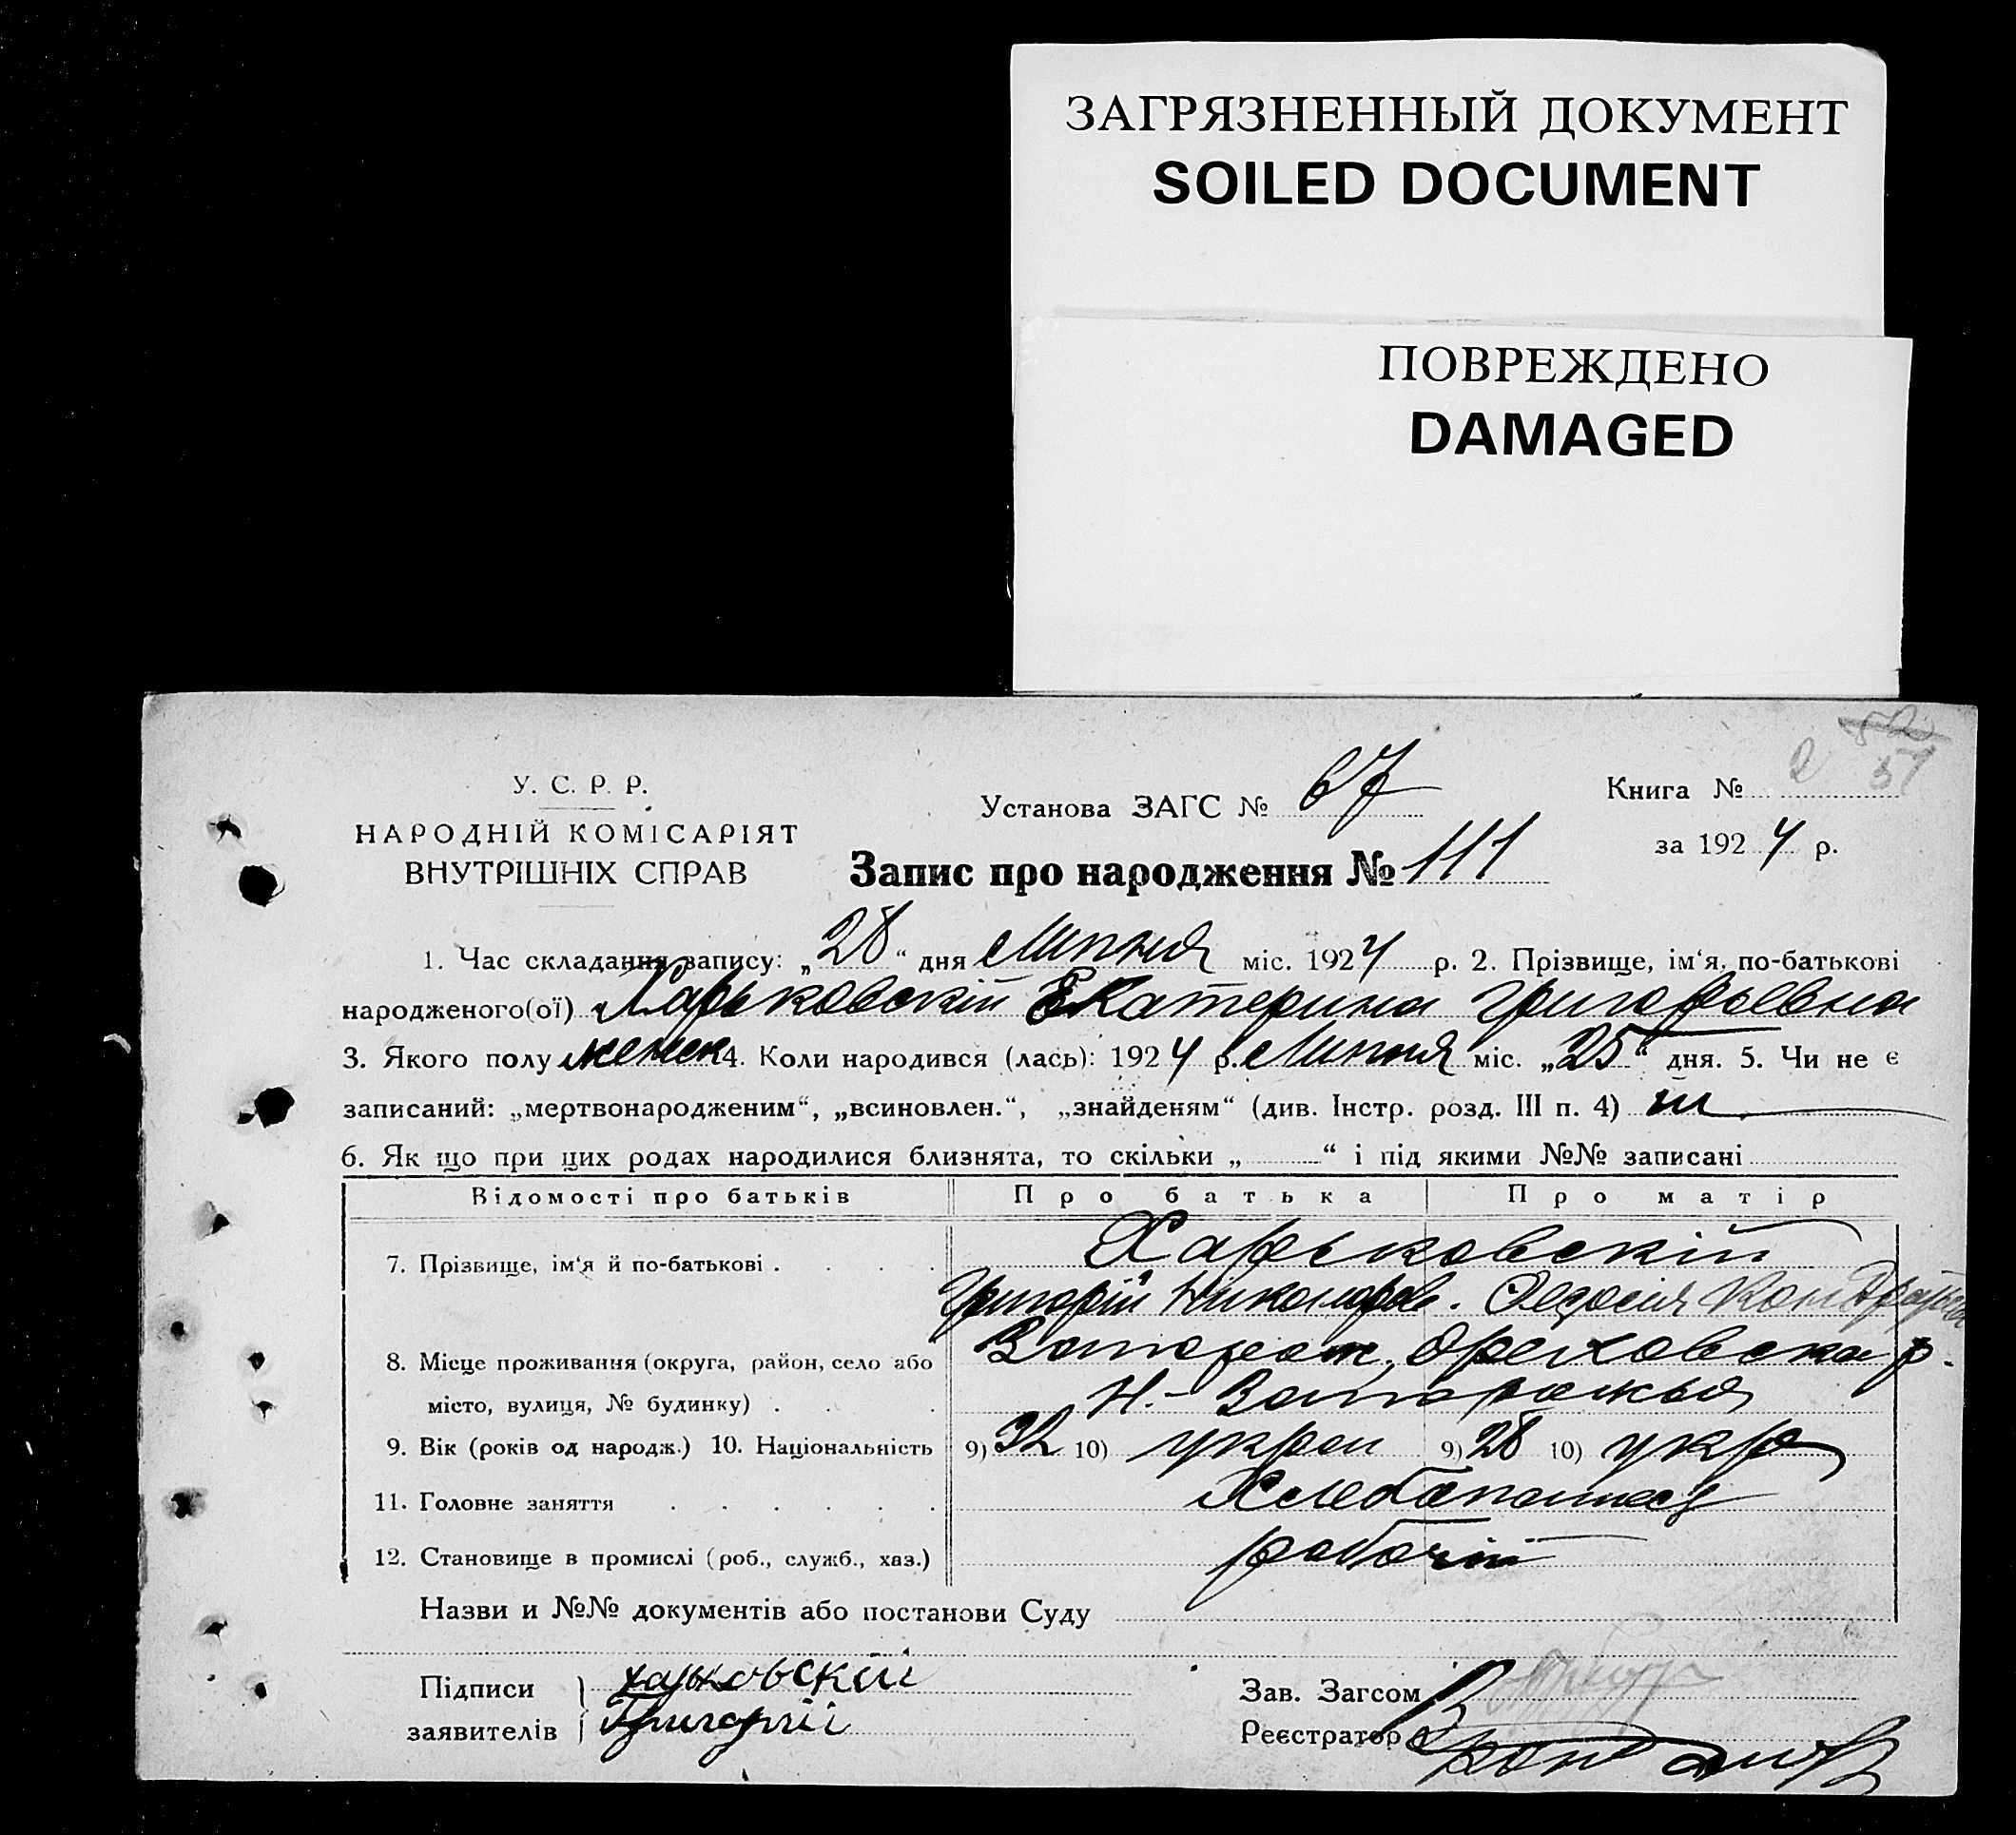 ЗАГРЯЗНЕННЫЙ ДОКУМЕНТ
SOILED DOCUMENT
ПОВРЕЖДЕНО
DAMAGED
52
2 51
У. С. Р. Р.
НАРОДНІЙ КОМІСАРІЯТ
ВНУТРІШНІХ СПРАВ
Установа ЗАГС № 67
Книга №
за 1924 р.
Запис про народження № 111
1. Час складання запису: „28“ дня Липня міс. 1924 р. 2. Прізвище, ім‘я, по-батькові
народженого(ої) Харьковскій Екатерина Григорьевна
3. Якого полу женск 4. Коли народився (лась): 1924 р. Липня міс. „25“ дня. 5. Чи не є
записаний: „мертвонародженим“, „всиновлен.“, „знайденям“ (див. Інстр. розд. III п. 4)
6. Як що при цих родах народилися близнята, то скільки „ “ і під якими №№ записані
Відомості про батьків Про батька Про матір
7. Прізвище, ім‘я й по-батькові . Харьковскій
Григорій Николаев. Федосия
8. Місце проживання (округа, район, село або Запорож, Ореховска р.
місто, вулиця, № будинку) . Н.-Запорожья
9. Вік (років од народж.) 10. Національність 9) 32 10) укра 9) 28 10) укр
11. Головне заняття Хлебопашец
12. Становище в промислі (роб., служб., хаз.) рабочій
Назви и №№ документів або постанови Суду
Підписи Харьковскій
заявителів Григорій
Зав. Загсом
Реєстратор